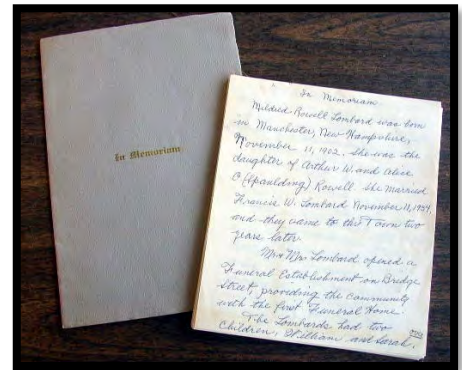 In Memoriam
In Memoriam
Mildred Rowell Lombard was born
in Manchester, New Hampshire,
November 11, 1902. She was the
daughter of Arthur W. and Alice
C (Spaulding) Rowell. She married
Francis W. Lombard November 11, 1934,
and they came to this Town two
years later.
Mr & Mrs Lombard opened a
Funeral Establishment on Bridge
Street, providing the community
with the first Funeral Home.
The Lombards had two
Children, William and Sarah.